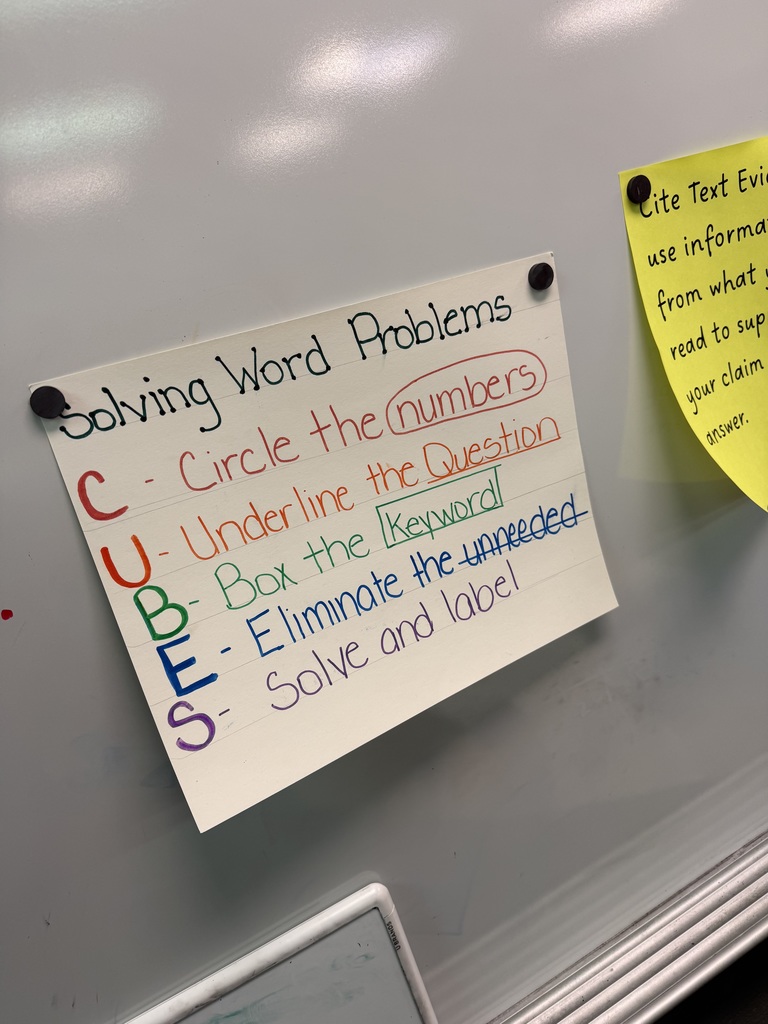 Solving Word Problems
C - Circle the numbers
U - Underline the Question
B - Box the Keyword
E - Eliminate the unneeded
S - Solve and label
Cite Text
use
from what
read to
your claim
answer.